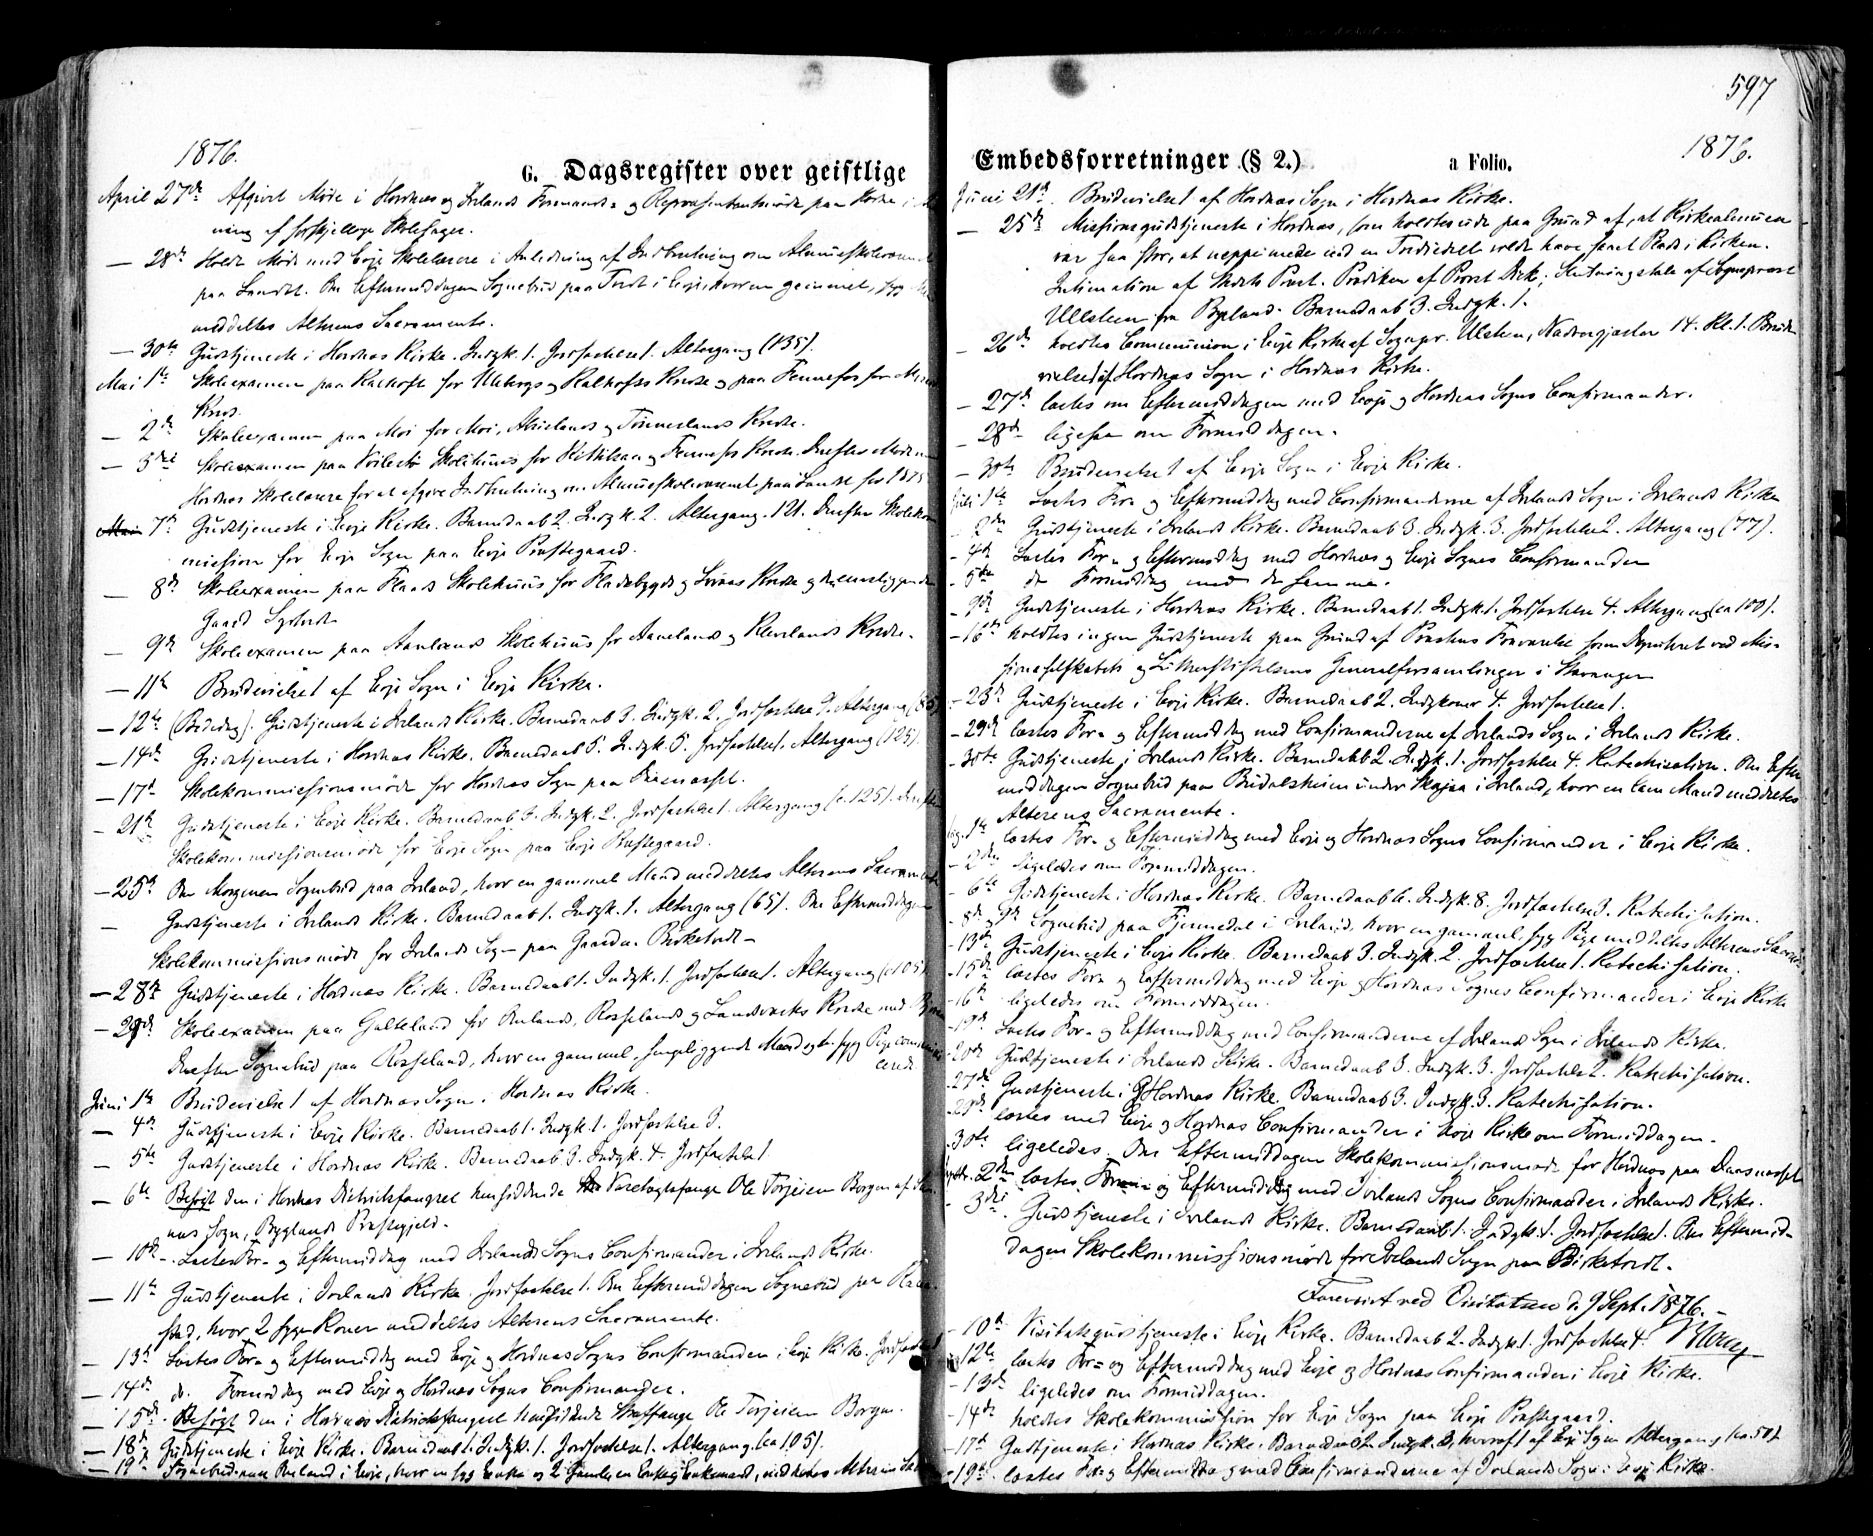 597
1876.
6. Dagsregister over geistlige
April 27de Afgivet Møde i Hordnæs og Ivelands Formands- og Repræsentantmøde paa
ning af forskjellige Skolesager.
— 28de Holdt Møde med Evje Skolelærere i Anledning af Indberetning om Almueskolevæsenet
paa Landet. Om Eftermiddagen Sognebud paa i Evje, hvor en gammel, syg
meddeltes Alterens Sacramente.
— 30te Gudstjeneste i Hordnæs Kirke. Indgk. 1. Jordfæstelse 1. Altergang (135).
Mai 1te Skoleexamen paa for og Kreds og paa Fennefos for
Kreds.
— 2den Skoleexamen paa Moi for Moi, og Kredse.
— 3die Skoleexamen paa Skolehuus for og Fennefos Kredse. Derefter Møde med
Hordnæs Skolelærere for at afgive Indberetning om Almueskolevæsenet paa Landet for 1875.
7de Gudstjeneste i Evje Kirke. Barnedaab 2. Indgk. 2. Altergang 121. Derefter Skolekom-
mission for Evje Sogn paa Evje Præstegaard.
— 8de Skoleexamen paa Flaads Skolehuus for og Kredse og
Gaard
— 9de Skoleexamen paa Skolehuus for og Kredse.
— 11te Brudevielse 1 af Evje Sogn i Evje Kirke.
— 12te (Bededag). Gudstjeneste i Ivelands Kirke. Barnedaab 3. Indgk. 2. Jordfæstelse 9. Altergang (85)
— 14de Gudstjeneste i Hordnæs Kirke. Barnedaab 5. Indgk. 5. Jordfæstelse 1. Altergang (125).
— 17de Skolekommissionsmøde for Hordnæs Sogn paa
— 21de Gudstjeneste i Evje Kirke. Barnedaab 3. Indgk. 2. Jordfæstelse 1. Altergang (c. 125). Derefter
Skolekommissionsmøde for Evje Sogn paa Evje Præstegaard.
— 25de Om Morgenen Sognebud paa Iveland, hvor en gammel Mand meddeltes Alterens Sacramente
— Gudstjeneste i Ivelands Kirke. Barnedaab 1. Indgk. 1. Altergang (65). Om Eftermiddagen
Skolekommissionsmøde for Ivelands Sogn paa Gaarden Birketvedt —
— 28de Gudstjeneste i Hordnæs Kirke. Barnedaab 1. Indgk. 1. Jordfæstelse 1. Altergang (c. 105)
— 29de Skoleexamen paa Galteland for og Kredse med
Derefter Sognebud paa Rosseland, hvor en gammel, sengeliggende Mand og en syg Pige
Juni 1te Brudevielse 1 af Hordnæs Sogn i Hordnæs Kirke.
— 4de Gudstjeneste i Evje Kirke. Barnedaab 1. Indgk. 1. Jordfæstelse 3.
— 5te Gudstjeneste i Hordnæs Kirke. Barnedaab 3. Indgk. 4. Jordfæstelse 1.
— 6te Besøgt den i Hornæs Distriktsfængsel hensiddende Varetægtsfange Ole Torjeisen Borgen af
næs Sogn, Byglands Præstegjeld.
— 10de Læstes For- og Eftermiddag med Ivelands Sogns Confirmander i Ivelands Kirke.
— 11te Gudstjeneste i Ivelands Kirke. Jordfæstelse 1. Om Eftermiddagen Sognebud paa
stad, hvor 2 syge Koner meddeltes Alterens Sacramente.
— 13de Læstes For- og Eftermiddag med Evje og Hordnæs Sogns Confirmander i Evje Kirke.
— 14de do. Formiddag med Evje og Hordnæs Sogns Confirmander.
— 15de Besøgt den i Hordnæs Distriktsfængsel hensiddende Straffange Ole Torjeisen Borgen.
— 18de Gudstjeneste i Evje Kirke. Barnedaab 1. Indgk. 1. Jordfæstelse 1. Altergang (ca 105).
— 19de Sognebud paa i Evje, hvor en syg Enke og 2
Embedsforretninger (§ 2.) a Folio.
1876.
Juni 21de Brudevielse 1 af Hordnæs Sogn i Hordnæs Kirke.
— 25de Missionsgudstjeneste i Hordnæs, som holdtes ude paa Grund af, at Kirkealmuen
var saa stor, at neppe mere end en Trediedel vilde have faaet Plads i Kirken.
Intimation af Prædiken af Provst Slutningstale af Sognepræst
Ullstein fra Bygland. Barnedaab 3. Indgk. 1.
— 26de holdtes Communion i Evje Kirke af Sognepr. Ulstein, Nadvergjæster 14. Kl. 1. Brude-
vielse 1 af Hordnæs Sogn i Hordnæs Kirke.
— 27de læstes om Eftermiddagen med Evje og Hordnæs Sogns Confirmander.
— 28de ligesaa om Formiddagen.
— 30te Brudevielse 1 af Evje Sogn i Evje Kirke.
Juli 1te Læstes For- og Eftermiddag med Confirmanderne af Ivelands Sogn i Ivelands Kirke
— 2den Gudstjeneste i Ivelands Kirke. Barnedaab 3. Indgk. 3. Jordfæstelse 2. Altergang (77).
— 4de Læstes For- og Eftermiddag med Hordnæs og Evje Sognes Confirmander
— 5te do Formiddag med de samme.
— 9de Gudstjeneste i Hordnæs Kirke. Barnedaab 1. Indgk. 1. Jordfæstelse 4. Altergang (ca 100).
— 16de holdtes ingen Gudstjeneste paa Grund af Præstens Fraværelse som Deputeret ved Mis-
sionsselskabets og Generalforsamlinger i Stavanger
— 23de Gudstjeneste i Evje Kirke. Barnedaab 2. Indgkoner 4. Jordfæstelse 1.
— 29de læstes For- og Eftermiddag med Confirmanderne af Ivelands Sogn i Ivelands Kirke.
— 30te Gudstjeneste i Ivelands Kirke. Barnedaab 2. Indgk. 1. Jordfæstelse 4. Katechisation. Om Efter-
middagen Sognebud paa under Skaiaa i Iveland, hvor en lam Mand meddeltes
Alterens Sacramente.
Aug. 1te læstes For- og Eftermiddag med Evje og Hordnæs Sogns Confirmander i Evje Kirke.
— 2den ligeledes om Formiddagen.
— 6te Gudstjeneste i Hordnæs Kirke. Barnedaab 6. Indgk. 8. Jordfæstelse 3. Katechisation.
— 8de og 9de Sognebud paa i Iveland, hvor en gammel, syg Pige meddeltes Alterens Sacrament
— 13de Gudstjeneste i Evje Kirke. Barnedaab 3. Indgk. 2. Jordfæstelse 1. Katechisation.
— 15de læstes For- og Eftermiddag med Evje og Hordnæs Sognes Confirmander i Evje Kirke
— 16de ligeledes om Formiddagen.
— 19de Læstes For- og Eftermiddag med Confirmanderne af Ivelands Sogn i Ivelands Kirke.
— 20de Gudstjeneste i Ivelands Kirke. Barnedaab 3. Indgk. 3. Jordfæstelse 2. Katechisation.
— 27de Gudstjeneste i Hordnæs Kirke. Barnedaab 3. Indgk. 3. Katechisation.
— 29de læstes med Evje og Hordnæs Confirmander i Evje Kirke om Formiddagen.
— 30te ligeledes. Om Eftermiddagen Skolekommissionsmøde for Hordnæs paa
Septbr. 2den læstes For- og Eftermiddag med Ivelands Sogns Confirmander i Ivelands Kirke.
— 3die Gudstjeneste i Ivelands Kirke. Barnedaab 1. Indgk. 1. Jordfæstelse 1. Om Eftermid-
dagen Skolekommissionsmøde for Ivelands Sogn paa Birketvedt.
Forevist ved Visitatsen d. 9 Sept. 1876. —
— 10de Visitatsgudstjeneste i Evje Kirke. Barnedaab 2. Indgk. 1. Jordfæstelse 4.
— 12te læstes For- og Eftermiddag med Evje og Hordnæs Confirmander i Evje Kirke.
— 13de ligeledes om Formiddagen.
— 14de holdtes Skolekommission for Evje Sogn paa Evje Præstegaard.
— 17de Gudstjeneste i Hordnæs Kirke. Barnedaab 2. Indgk. 3, hvoraf 1 af Evje Sogn. Altergang (ca. 50).
— 19de læstes For- og Eftermiddag med Confirmanderne af Ivelands Sogn i Evje Kirke.